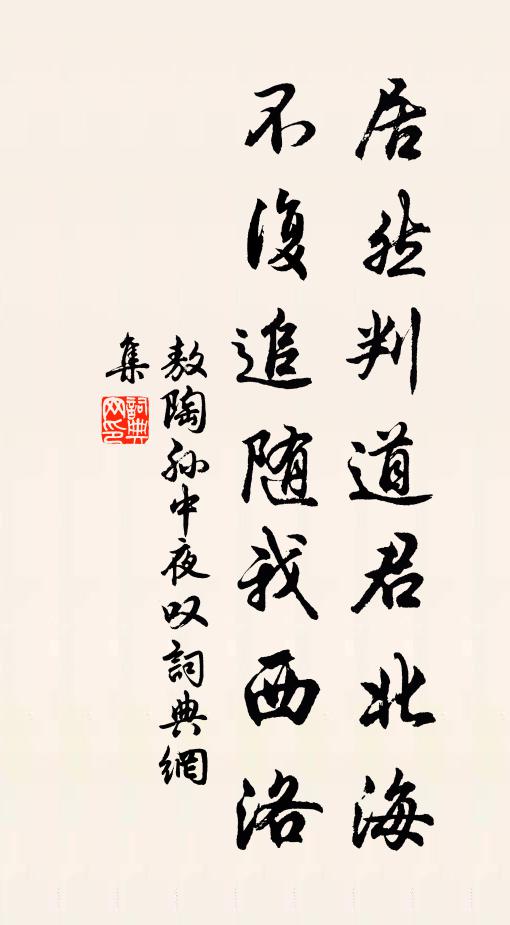 居然判道君北海
不復追随我西洛
敖陶孙中夜叹詞典網
集
詞典
网印